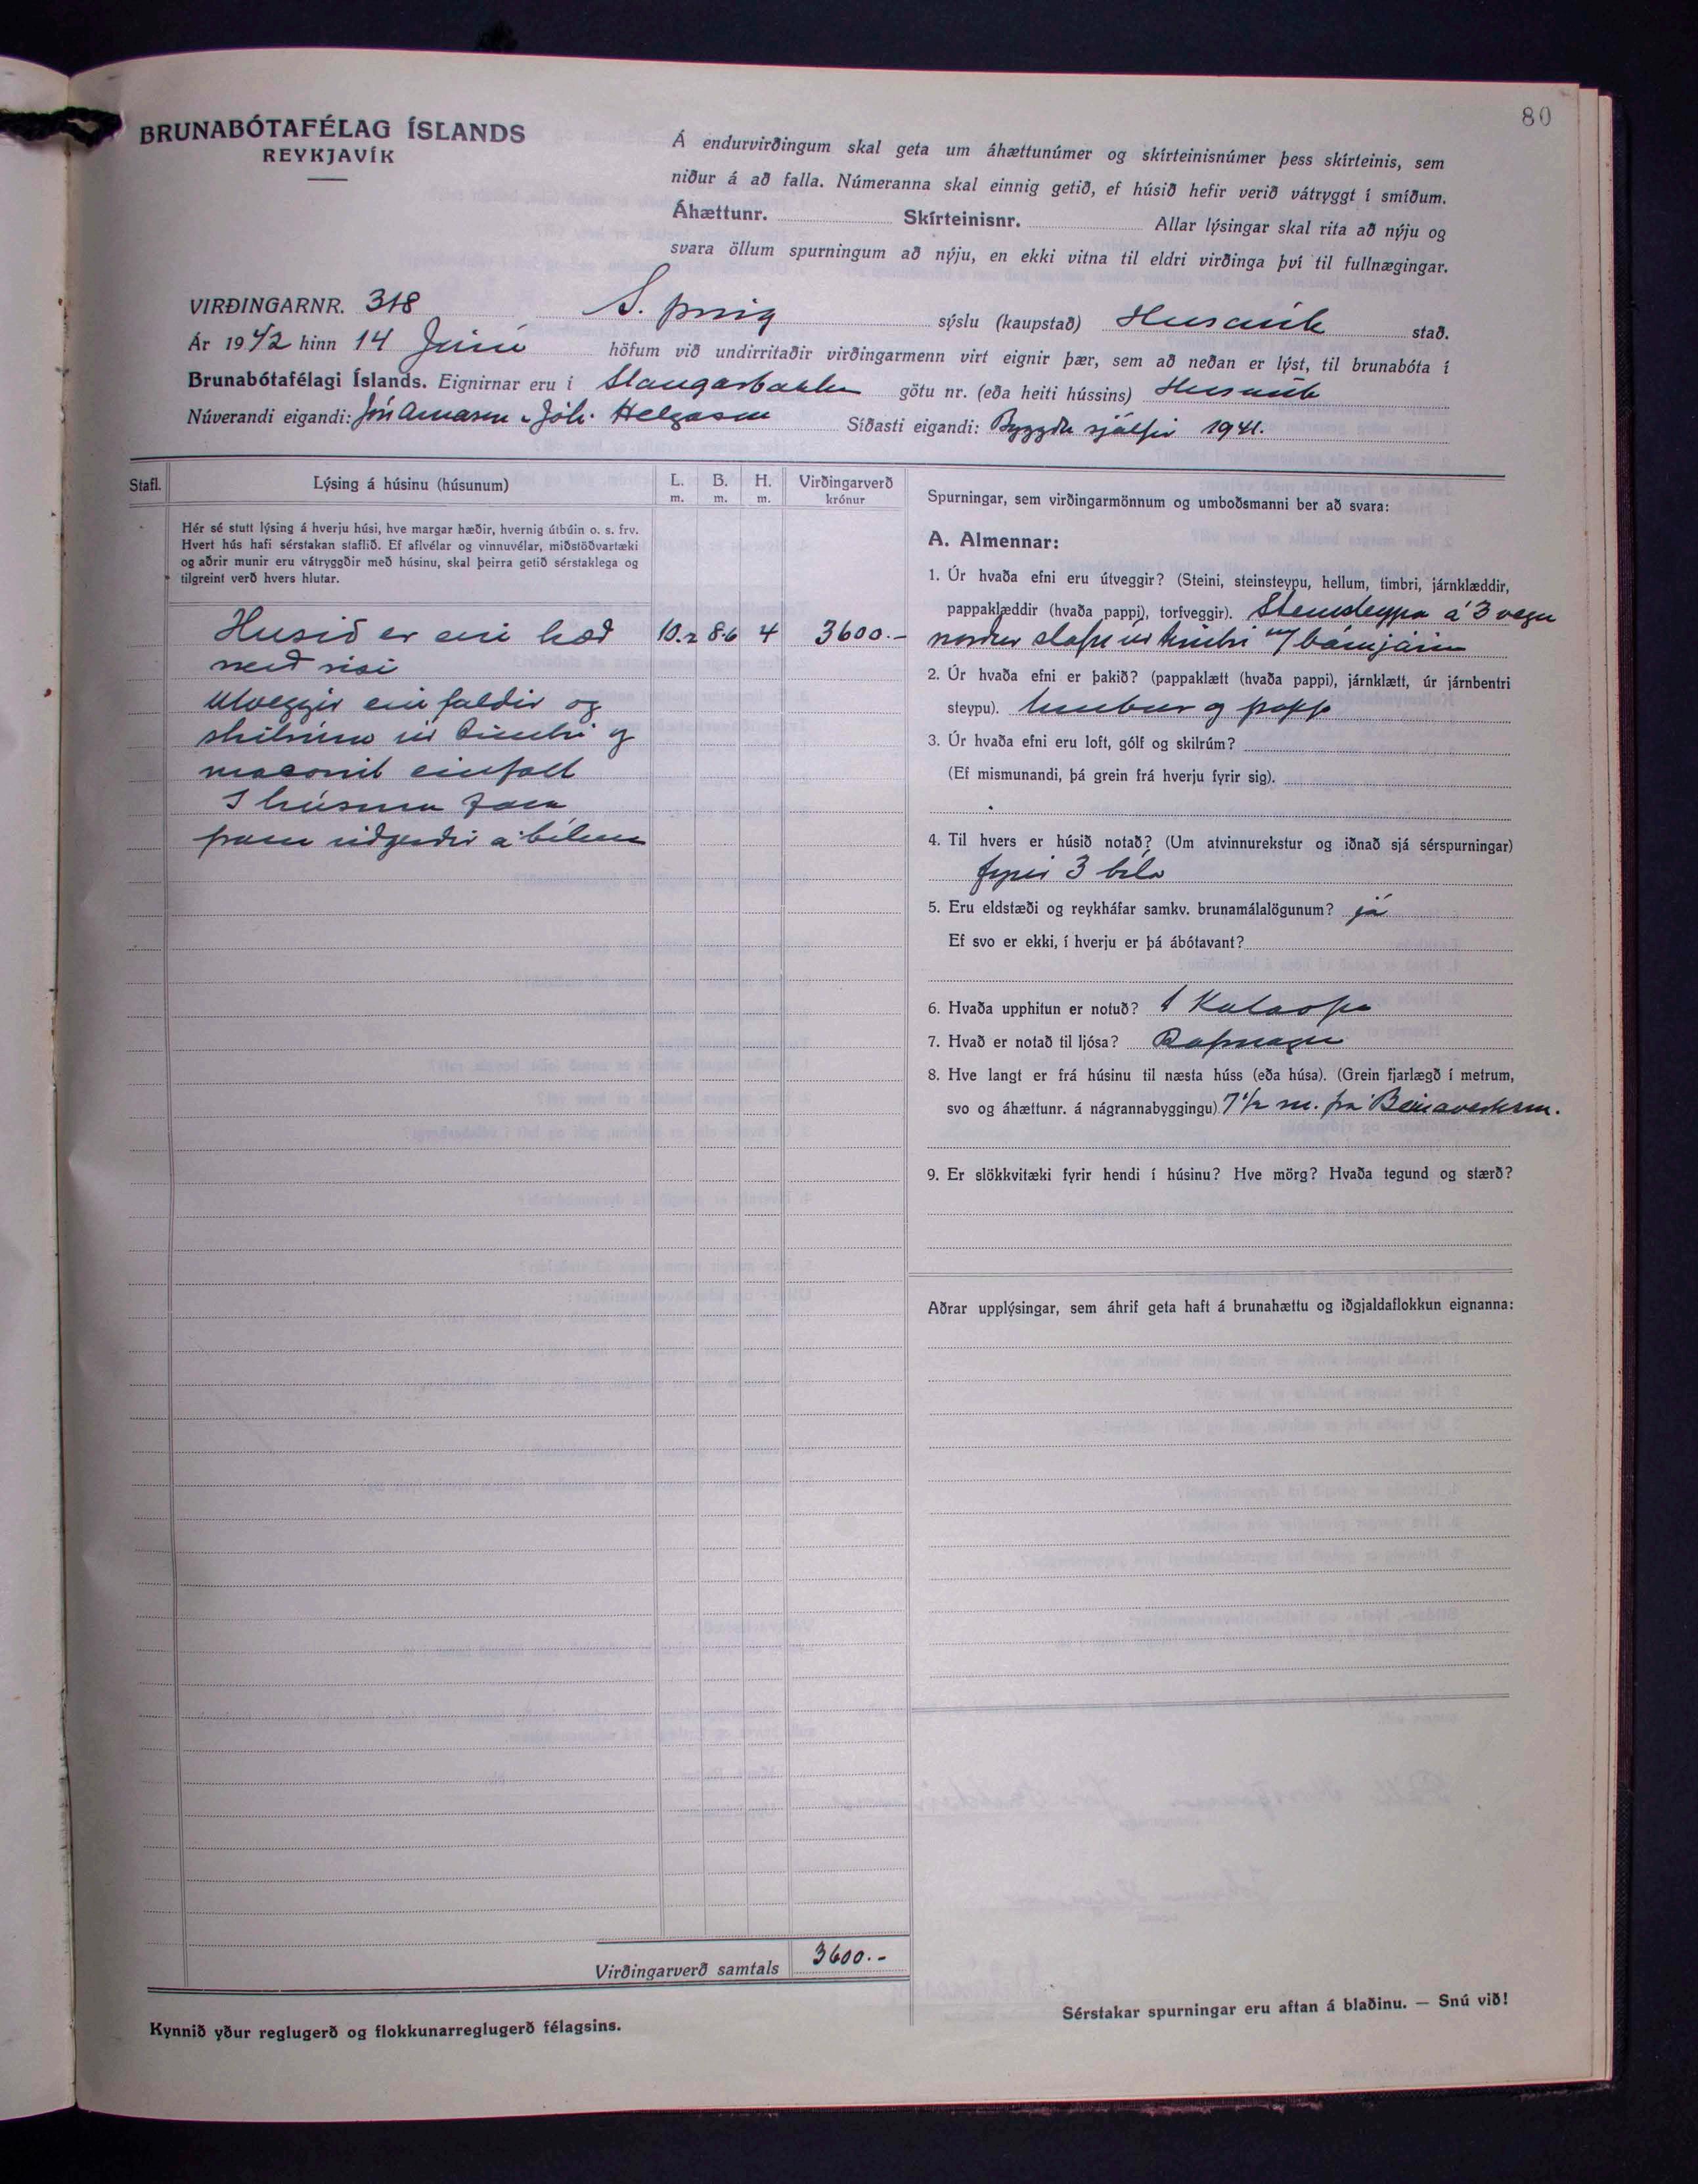 80
BRUNABÓTAFÉLAG ÍSLANDS
REYKJAVÍK
Á endurvirðingum skal geta um áhættunúmer og skírteinisnúmer þess skírteinis, sem
niður á að falla. Númeranna skal einnig getið, ef húsið hefir verið vátryggt í smíðum.
Áhættunr. Skírteinisnr. Allar lýsingar skal rita að nýju og
svara öllum spurningum að nýju, en ekki vitna til eldri virðinga því til fullnægingar.
VIRÐINGARNR. 318 S. þing sýslu (kaupstað) Húsavík stað.
Ár 1942 hinn 14 Júní höfum við undirritaðir virðingarmenn virt eignir þær, sem að neðan er lýst, til brunabóta í
Brunabótafélagi Íslands. Eignirnar eru í Stangarbakka götu nr. (eða heiti hússins) Húsavík
Núverandi eigandi: Jón Arnason Jóh. Helgason Síðasti eigandi: Byggðu sjálfir 1941.
Stafl. Lýsing á húsinu (húsunum) L. m. B. m. H. m. Virðingarverð krónur
Hér sé stutt lýsing á hverju húsi, hve margar hæðir, hvernig útbúin o. s. frv.
Hvert hús hafi sérstakan staflið. Ef aflvélar og vinnuvélar, miðstöðvartæki
og aðrir munir eru vátryggðir með húsinu, skal þeirra getið sérstaklega og
tilgreint verð hvers hlutar.
Husið er ein hæð 10.2 8.6 4 3600.-
með risi
Utveggir einfaldir og
skilrúm úr timbri og
masonit einfalt
I húsinu fara
fram viðgerðir á bílum
Virðingarverð samtals 3600.-
Kynnið yður reglugerð og flokkunarreglugerð félagsins.
Spurningar, sem virðingarmönnum og umboðsmanni ber að svara:
A. Almennar:
1. Úr hvaða efni eru útveggir? (Steini, steinsteypu, hellum, timbri, járnklæddir,
pappaklæddir (hvaða pappi), torfveggir). Steinsteypa á 3 vegu
norður stafn úr timbri m/ bárujárn
2. Úr hvaða efni er þakið? (pappaklætt (hvaða pappi), járnklætt, úr járnbentri
steypu). timbur og papp
3. Úr hvaða efni eru loft, gólf og skilrúm?
(Ef mismunandi, þá grein frá hverju fyrir sig).
4. Til hvers er húsið notað? (Um atvinnurekstur og iðnað sjá sérspurningar)
fyrir 3 bíla
5. Eru eldstæði og reykháfar samkv. brunamálalögunum? já
Ef svo er ekki, í hverju er þá ábótavant?
6. Hvaða upphitun er notuð? 1 Kolaofn
7. Hvað er notað til ljósa? Rafmagn
8. Hve langt er frá húsinu til næsta húss (eða húsa). (Grein fjarlægð í metrum,
svo og áhættunr. á nágrannabyggingu) 7 1/2 m. frá Beinaverksm.
9. Er slökkvitæki fyrir hendi í húsinu? Hve mörg? Hvaða tegund og stærð?
Aðrar upplýsingar, sem áhrif geta haft á brunahættu og iðgjaldaflokkun eignanna:
Sérstakar spurningar eru aftan á blaðinu. — Snú við!